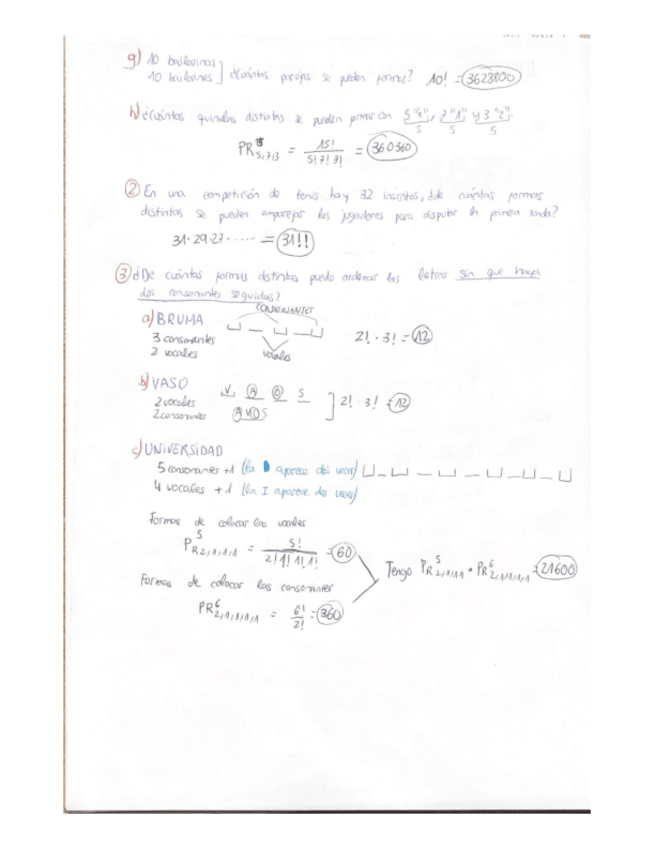 g) 10 bailarinas
10 bailarines ] ¿Cuántas parejas se pueden formar? 10! = 3628800
h) ¿Cuántas quinielas distintas se pueden formar con 5 "1", 7 "X" y 3 "2"?
PR 15 5,7,3 = 15! / 5! 7! 3! = 360360
② En una competición de tenis hay 32 inscritos, ¿de cuántas formas
distintas se pueden emparejar los jugadores para disputar la primera ronda?
31·29·27····· = 31!!
③ ¿De cuántas formas distintas puedo ordenar las letras sin que haya
dos consonantes seguidas?
CONSONANTES
a) BRUMA
3 consonantes 2! · 3! = 12
2 vocales vocales
b) VASO V A O S
2 vocales ] 2! · 3! = 12
2 consonantes A V O S
c) UNIVERSIDAD
5 consonantes +1 (la D aparece dos veces)
4 vocales +1 (la I aparece dos veces)
Formas de colocar las vocales
PR 5 2,1,1,1 = 5! / 2! 1! 1! 1! = 60
Tengo PR 5 2,1,1,1 · PR 6 2,1,1,1,1 = 21600
Formas de colocar las consonantes
PR 6 2,1,1,1,1 = 6! / 2! = 360